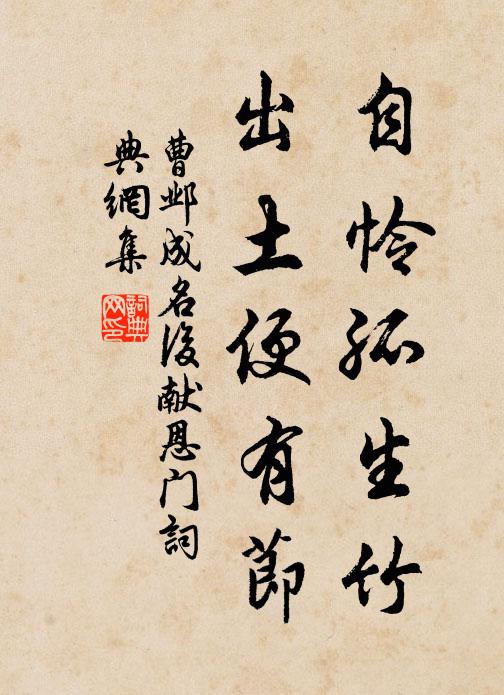 自怜孤生竹
出土便有節
曹邺成名後献恩门詞
典網集
詞典网印